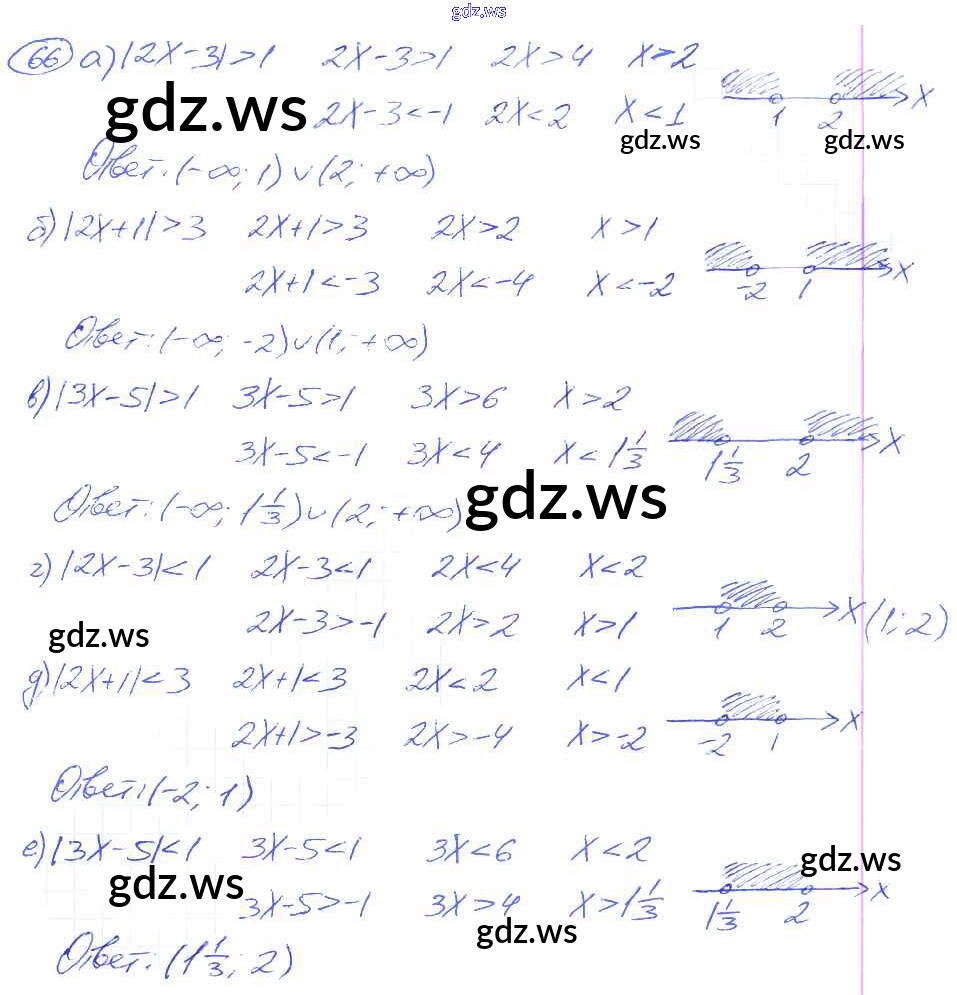 gdz.ws
66 а) |2x-3|>1 2x-3>1 2x>4 x>2
gdz.ws 2x-3<-1 2x<2 x<1 1 2 x
gdz.ws gdz.ws
Ответ: (-∞; 1)∪(2; +∞)
б) |2x+1|>3 2x+1>3 2x>2 x>1
2x+1<-3 2x<-4 x<-2 -2 1 x
Ответ: (-∞; -2)∪(1; +∞)
в) |3x-5|>1 3x-5>1 3x>6 x>2
3x-5<-1 3x<4 x<1 1/3 1 1/3 2 x
Ответ: (-∞; 1 1/3)∪(2; +∞) gdz.ws
г) |2x-3|<1 2x-3<1 2x<4 x<2
gdz.ws 2x-3>-1 2x>2 x>1 1 2 x (1; 2)
д) |2x+1|<3 2x+1<3 2x<2 x<1
2x+1>-3 2x>-4 x>-2 -2 1 x
Ответ: (-2; 1)
е) |3x-5|<1 3x-5<1 3x<6 x<2 gdz.ws
gdz.ws 3x-5>-1 3x>4 x>1 1/3 1 1/3 2 x
gdz.ws
Ответ: (1 1/3; 2)